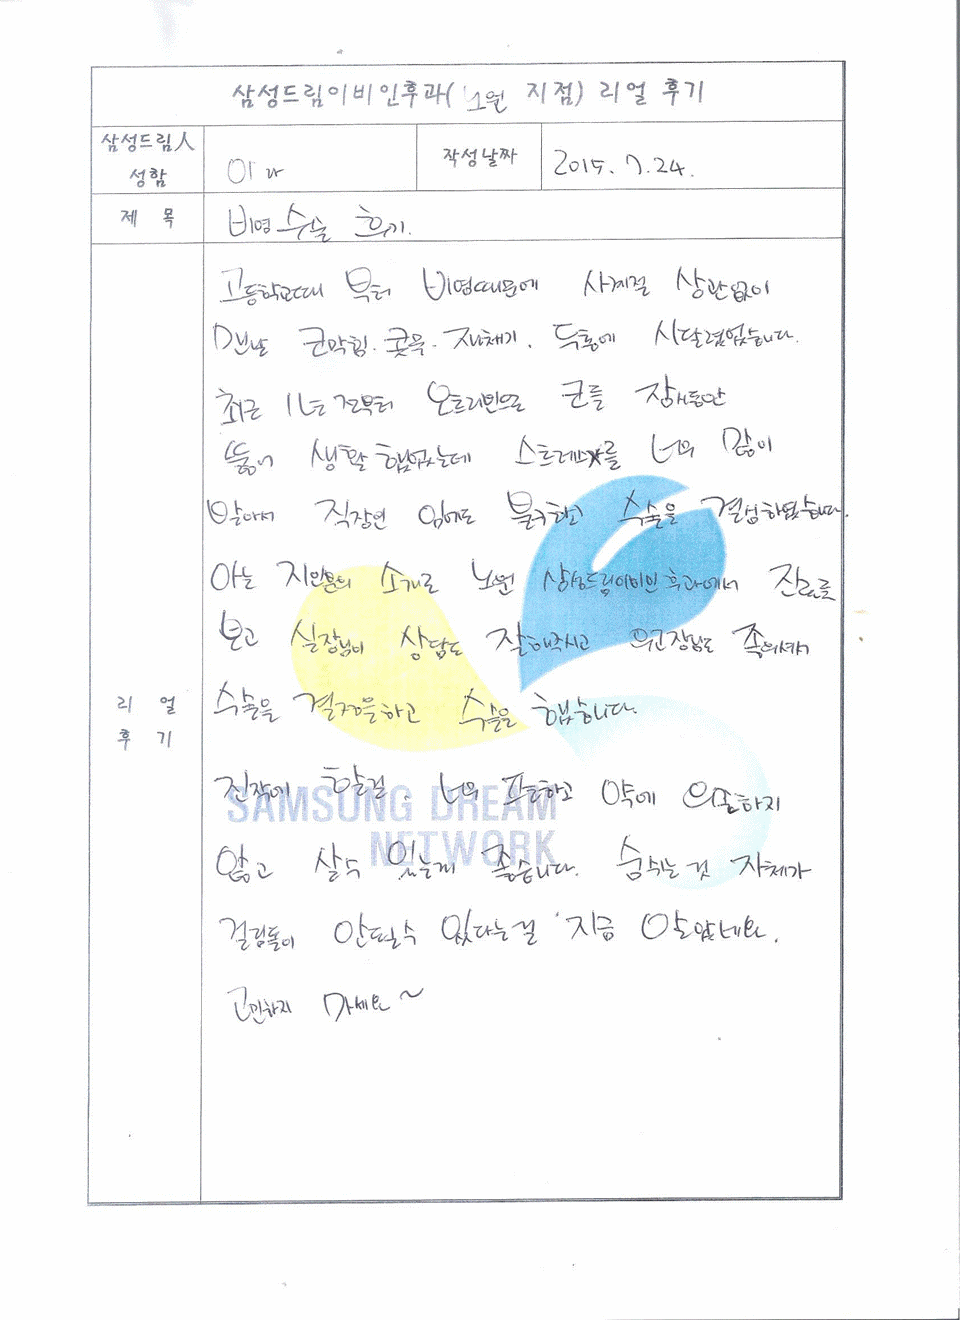 삼성드림이비인후과( 노원 지점) 리얼 후기
삼성드림人 성함
이
작성날짜
2015. 7. 24.
제 목
비염 수술 후기.
리 얼 후 기
고등학교때 부터 비염때문에 사계절 상관없이
맨날 코막힘. 콧물. 재채기. 두통에 시달렸었습니다.
최근 1년 전부터 오트리빈으로 코를 장시간동안
뚫어 생활 했었는데 스트레스를 너무 많이
받아서 직장인 임에도 불구하고 수술을 결심하였습니다.
아는 지인분의 소개로 노원 삼성드림이비인후과에서 진료를
보고 실장님이 상담도 잘해주시고 원장님도
수술을 결정을하고 수술을 했습니다.
진작에 할걸. 너무 편하고 약에 의존하지
않고 살수 있는게 좋습니다. 숨쉬는 것 자체가
걸림돌이 안될수 있다는걸 지금 알았네요.
고민하지 마세요~
SAMSUNG DREAM
NETWORK